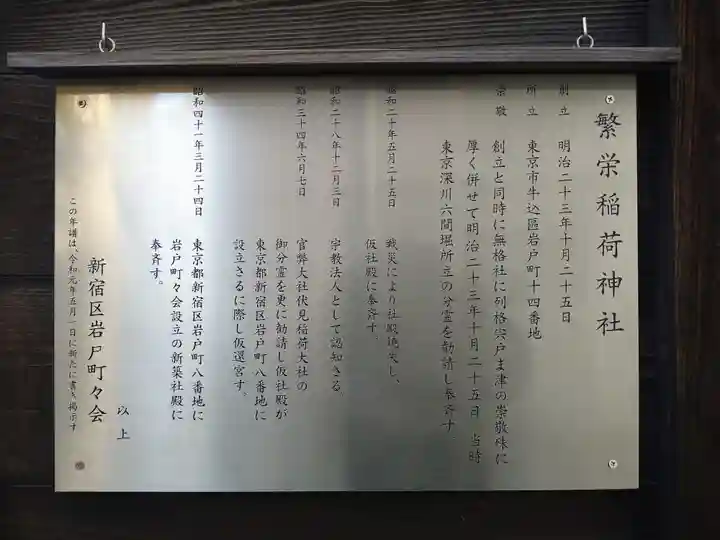 繁栄稲荷神社
創立 明治二十三年十月二十五日
所立 東京市牛込區岩戸町十四番地
崇敬 創立と同時に無格社に列格宍戸ま津の崇敬殊に
厚く併せて明治二十三年十月二十五日 当時
東京深川六間堀所立の分霊を勧請し奉斉す
昭和二十年五月二十五日 戦災により社殿焼失し、
仮社殿に奉斉す。
昭和二十八年十二月三日 宗教法人として認知さる
昭和三十四年六月七日 官弊大社伏見稲荷大社の
御分霊を更に勧請し仮社殿が
東京都新宿区岩戸町八番地に
設立さるに際し仮遷宮す。
昭和四十一年三月二十四日 東京都新宿区岩戸町八番地に
岩戸町々会設立の新築社殿に
奉斉す。
以上
新宿区岩戸町々会
この年譜は、令和元年五月一日に新たに書き掲示す